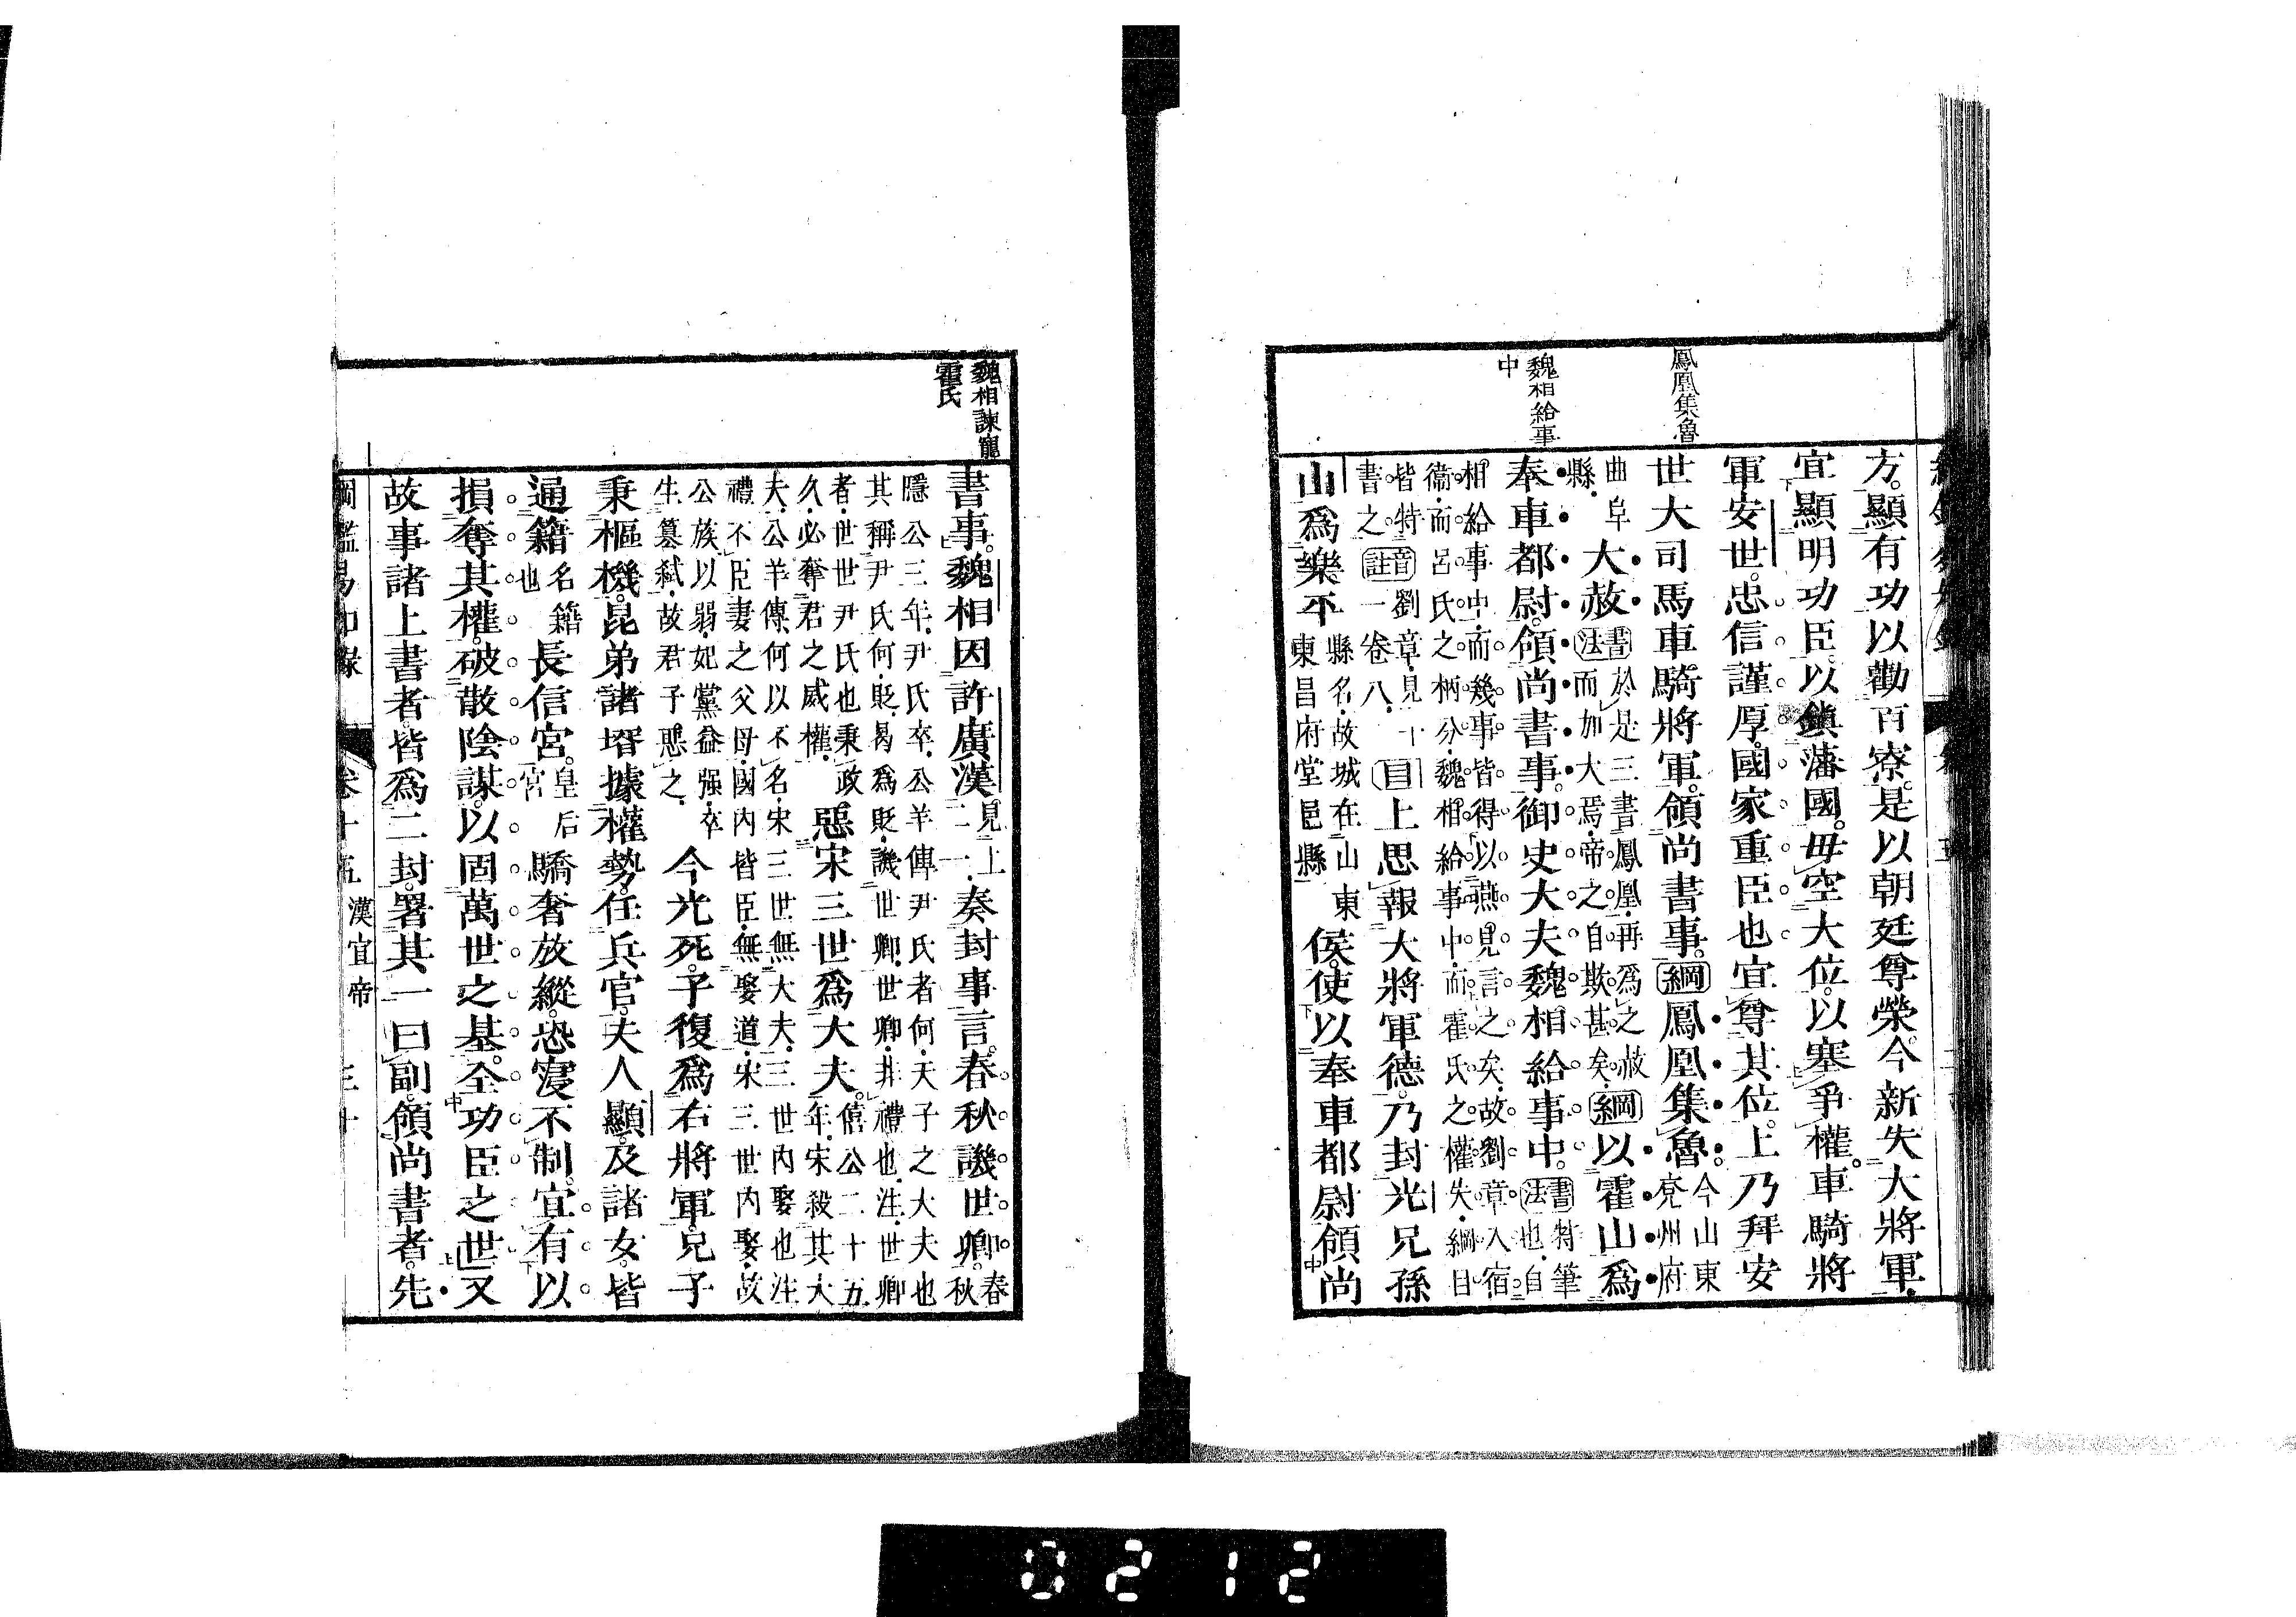 鳳凰集魯
魏相給事
中
方。顯有功以勸百寮。是以朝廷尊榮。今新失大將軍。
宜顯明功臣。以鎮藩國。毋空大位。以塞爭權。車騎將
軍安世。忠信謹厚。國家重臣也。宜尊其位。上乃拜安
世大司馬車騎將軍。領尚書事。綱鳳凰集魯。今山東
兗州府
曲阜
縣。大赦書法於是三書鳳凰。再爲之赦
而加大焉。帝之自欺甚矣。綱以霍山爲
奉車都尉。領尚書事。御史大夫魏相給事中。書法特筆
也。自
相給事中。而幾事皆得以燕見言之矣。故劉章入宿
衞。而呂氏之柄分。魏相給事中。而霍氏之權失。綱目
皆特
書之音註劉章。見十
一卷八。目上思報大將軍德。乃封光兄孫
山爲樂平縣名。故城在山東
東昌府堂邑縣侯。使以奉車都尉領尚
魏相諫寵
霍氏
書事。魏相因許廣漢見上
二一。奏封事言。春秋譏世卿。春
秋
隱公三年。尹氏卒。公羊傳尹氏者何。天子之大夫也
其稱尹氏何。貶。曷爲貶。譏世卿。世卿。非禮也。注。世卿
者。世世尹氏也秉政
久。必奪君之威權。惡宋三世爲大夫。僖公二十五
年。宋殺其大
夫。公羊傳何以不名。宋三世無大夫。三世內娶也注
禮不臣妻之父母。國內皆臣。無娶道。宋三世內娶。故
公族以弱。妃黨益强。卒
生篡弒。故君子惡之。今光死。子復爲右將軍。兄子
秉樞機。昆弟諸壻據權勢。任兵官。夫人顯。及諸女。皆
通籍名籍
也長信宮。皇后
宮驕奢放縱。恐寖不制。宜有以
損奪其權。破散陰謀。以固萬世之基。全功臣之世。又
故事諸上書者。皆爲二封。署其一曰副。領尚書者。先
綱鑑易知錄 卷十五 漢宣帝 三十